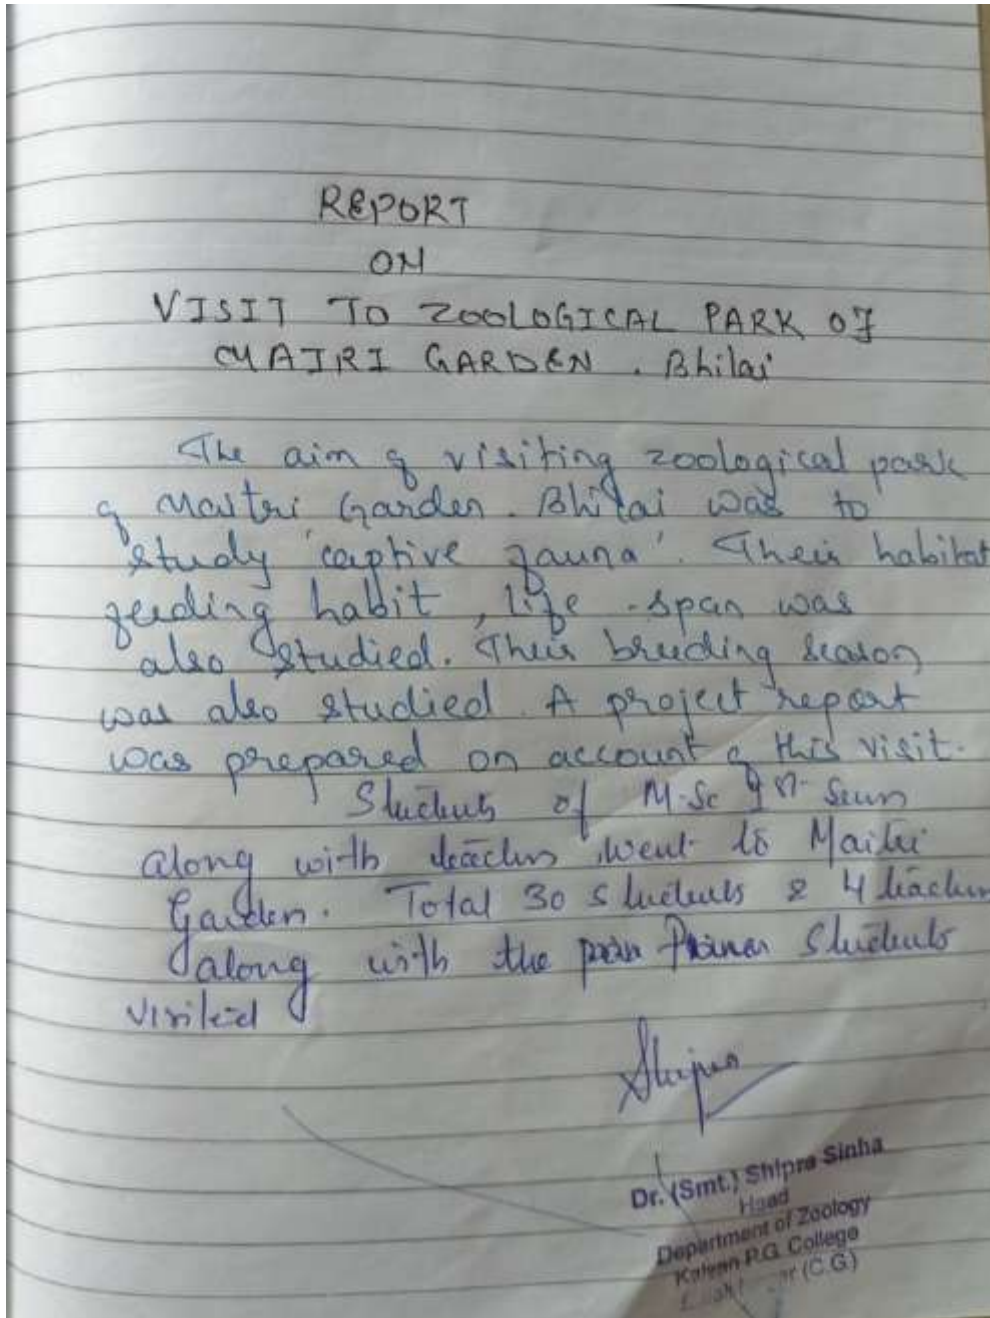 REPORT
ON
VISIT TO ZOOLOGICAL PARK OF
MAITRI GARDEN. Bhilai
The aim of visiting zoological park
of Maitri Garden. Bhilai was to
study 'captive fauna'. Their habitat
feeding habit, life-span was
also studied. Their breeding season
was also studied. A project report
was prepared on account of this visit.
Students of M.Sc Ist Sem
along with teachers went to Maitri
Garden. Total 30 students & 4 teachers
along with the students
visited
Dr. (Smt.) Shipra Sinha
Head
Department of Zoology
Kalyan P.G. College
(C.G.)